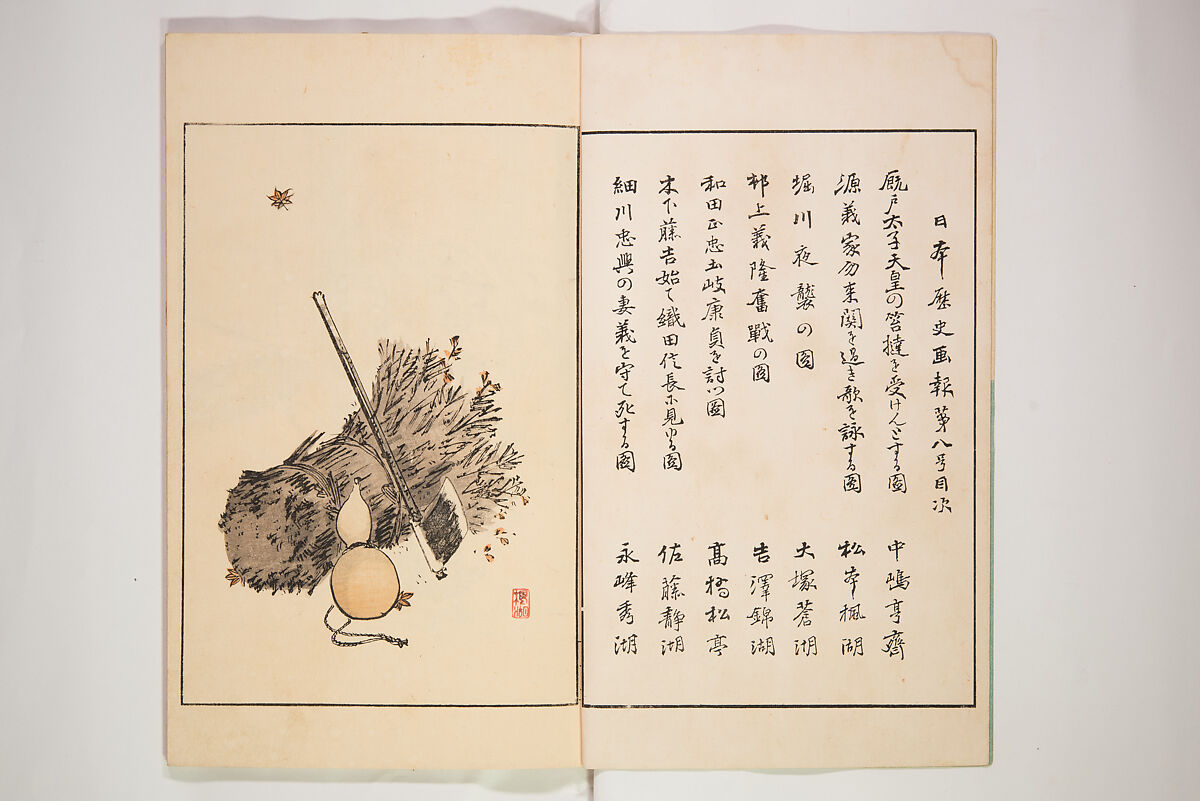 日本歴史画報第八号目次
厩戸太子天皇の笞撻を受けんとする圖 中嶋亨齋
源義家勿来関を過き歌を詠する圖 松本楓湖
堀川夜襲の圖 大塚蒼湖
邨上義隆奮戰の圖 吉澤錦湖
和田正忠土岐康貞を討つ圖 高橋松亭
木下藤吉始て織田信長に見ゆる圖 佐藤静湖
細川忠興の妻義を守て死する圖 永峰秀湖